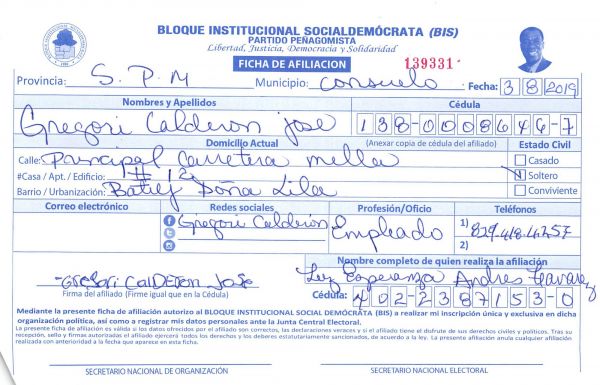 BLOQUE INSTITUCIONAL SOCIALDEMÓCRATA (BIS)
PARTIDO PEÑAGOMISTA
Libertad, Justicia, Democracia y Solidaridad
FICHA DE AFILIACION 139331
Provincia: S. P. M Municipio: Consuelo Fecha: 3 8 2019
Nombres y Apellidos Cédula
Gregori Calderon jose 138-0008646-7
Domicilio Actual (Anexar copia de cédula del afiliado) Estado Civil
Calle: Principal Carretera mella Casado
#Casa / Apt. / Edificio: # 12 Soltero
Barrio / Urbanización: Batey Doña Lila Conviviente
Correo electrónico Redes sociales Profesión/Oficio Teléfonos
Gregori Calderón Empleado 1) 829-418-4257
2)
Nombre completo de quien realiza la afiliación
GREGORI CALDERON JOSE Luz Esperanza Andres Tavarez
Firma del afiliado (Firme igual que en la Cédula) Cédula: 402-2387153-0
Mediante la presente ficha de afiliación autorizo al BLOQUE INSTITUCIONAL SOCIAL DEMÓCRATA (BIS) a realizar mi inscripción única y exclusiva en dicha
organización política, así como a registrar mis datos personales ante la Junta Central Electoral.
La presente ficha de afiliación es válida si los datos ofrecidos por el afiliado son correctos, las declaraciones veraces y si el afiliado tiene el disfrute de sus derechos civiles y políticos. Tras su
recepción, sello y firmas autorizadas el afiliado ejercerá todos los derechos y los deberes estatutariamente sancionados, de acuerdo a la ley. La presente afiliación anula cualquier afiliación
realizada con anterioridad a la fecha que aparece en esta ficha.
SECRETARIO NACIONAL DE ORGANIZACIÓN SECRETARIO NACIONAL ELECTORAL